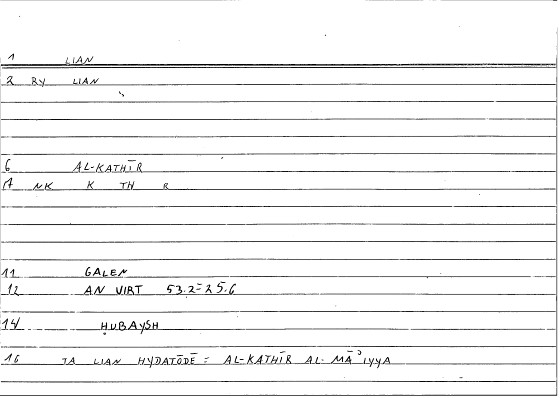 1 LIAN
2 RY LIAN
6 AL-KATHĪR
A NK K TH R
11 GALEN
12 AN VIRT 53.2=25.6
14 ḤUBAYSH
16 JA LIAN HYDATŌDĒ = AL-KATHĪR AL-MĀʾIYYA